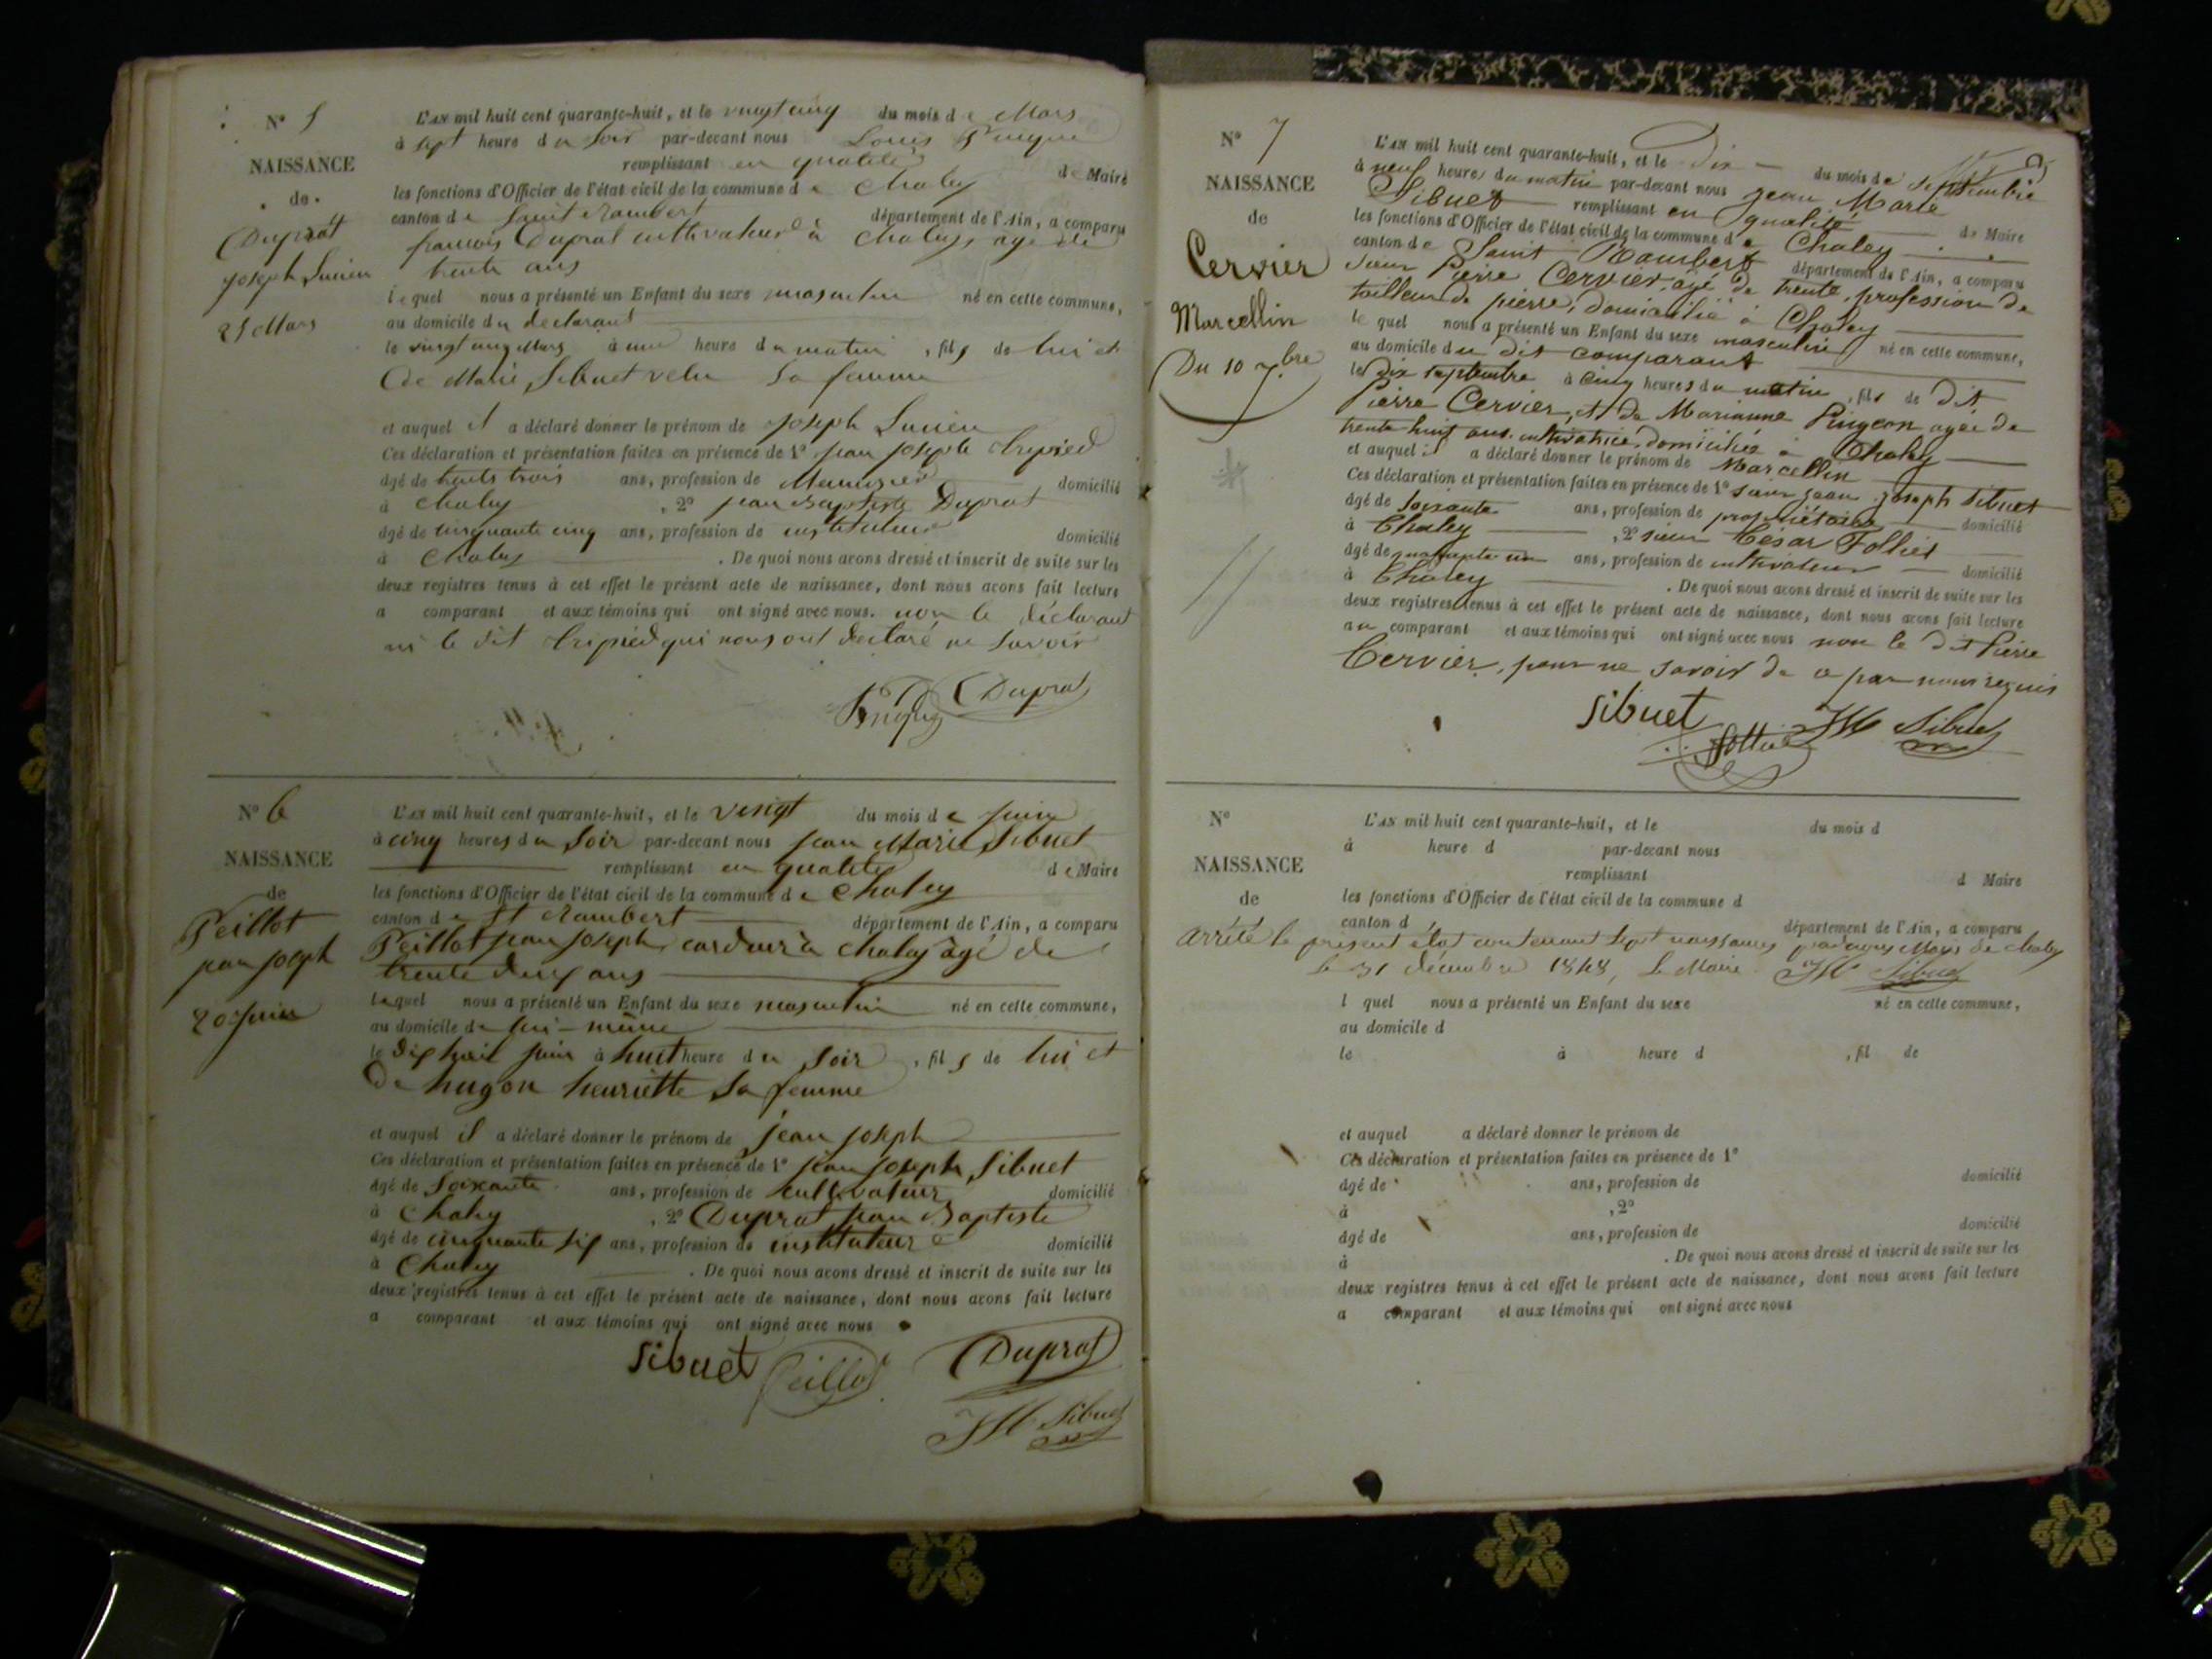 N° 5
NAISSANCE
de
Duprat
Joseph Lucien
25 Mars
L'AN mil huit cent quarante-huit, et le vingt cinq du mois de Mars
à sept heure du soir par-devant nous Louis
remplissant en qualité de Maire
les fonctions d'Officier de l'état civil de la commune de Chaley
canton de Saint Rambert département de l'Ain, a comparu
françois Duprat cultivateur à Chaley, agé de
trente ans
lequel nous a présenté un Enfant du sexe masculin né en cette commune,
au domicile du declarant
le vingt cinq Mars à une heure du matin, fils de lui et
de Marie Sibuet velu sa femme
et auquel il a déclaré donner le prénom de Joseph Lucien
Ces déclaration et présentation faites en présence de 1° Jean Joseph Trepied
âgé de trente trois ans, profession de Menuisier domicilié
à Chaley, 2° Jean Baptiste Duprat
âgé de cinquante cinq ans, profession de instituteur domicilié
à Chaley. De quoi nous avons dressé et inscrit de suite sur les
deux registres tenus à cet effet le présent acte de naissance, dont nous avons fait lecture
a comparant et aux témoins qui ont signé avec nous. non le déclarant
ni le dit Trepied qui nous ont declaré ne savoir
Duprat
N° 6
NAISSANCE
de
Peillot
jean joseph
20 Juin
L'AN mil huit cent quarante-huit, et le vingt du mois de juin
à cinq heures du soir par-devant nous jean Marie Sibuet
remplissant en qualité de Maire
les fonctions d'Officier de l'état civil de la commune de Chaley
canton de St Rambert département de l'Ain, a comparu
Peillot jean joseph, à chaley âgé de
trente deux ans
lequel nous a présenté un Enfant du sexe masculin né en cette commune,
au domicile de lui-même
le dix huit juin à huit heure du soir, fils de lui et
de hugon henriette sa femme
et auquel il a déclaré donner le prénom de jean joseph
Ces déclaration et présentation faites en présence de 1° jean joseph Sibuet
âgé de soixante ans, profession de cultivateur domicilié
à Chaley, 2° Duprat jean Baptiste
âgé de cinquante six ans, profession de instituteur domicilié
à Chaley. De quoi nous avons dressé et inscrit de suite sur les
deux registres tenus à cet effet le présent acte de naissance, dont nous avons fait lecture
a comparant et aux témoins qui ont signé avec nous
Sibuet Peillot Duprat
JM Sibuet
N° 7
NAISSANCE
de
Cervier
Marcellin
Du 10 7.bre
L'AN mil huit cent quarante-huit, et le Dix du mois de septembre
à neuf heures du matin par-devant nous Jean Marie
Sibuet remplissant en qualité de Maire
les fonctions d'Officier de l'état civil de la commune de Chaley
canton de Saint Rambert département de l'Ain, a comparu
sieur Pierre Cervier, agé de trente, profession de
tailleur de pierre, domicilié à Chaley
lequel nous a présenté un Enfant du sexe masculin né en cette commune,
au domicile du dit comparant
le dix septembre à cinq heures du matin, fils de dit
Pierre Cervier, et de Marianne Pingeon agée de
trente huit ans, cultivatrice, domiciliés à Chaley
et auquel il a déclaré donner le prénom de Marcellin
Ces déclaration et présentation faites en présence de 1° sieur Jean Joseph Sibuet
âgé de soixante ans, profession de propriétaire domicilié
à Chaley, 2° sieur César Folliet
âgé de quarante un ans, profession de cultivateur domicilié
à Chaley. De quoi nous avons dressé et inscrit de suite sur les
deux registres tenus à cet effet le présent acte de naissance, dont nous avons fait lecture
au comparant et aux témoins qui ont signé avec nous non le dit Pierre
Cervier, pour ne savoir de ce par nous requis
Sibuet
JM Sibuet
N°
NAISSANCE
de
L'AN mil huit cent quarante-huit, et le du mois d
à heure d par-devant nous
remplissant d Maire
les fonctions d'Officier de l'état civil de la commune d
canton d département de l'Ain, a comparu
arrêté le présent état contenant sept naissances par nous Maire de Chaley
le 31 décembre 1848, Le Maire JM Sibuet
l quel nous a présenté un Enfant du sexe né en cette commune,
au domicile d
le à heure d, fil de
et auquel a déclaré donner le prénom de
Ces déclaration et présentation faites en présence de 1°
âgé de ans, profession de domicilié
à, 2°
âgé de ans, profession de domicilié
à. De quoi nous avons dressé et inscrit de suite sur les
deux registres tenus à cet effet le présent acte de naissance, dont nous avons fait lecture
a comparant et aux témoins qui ont signé avec nous